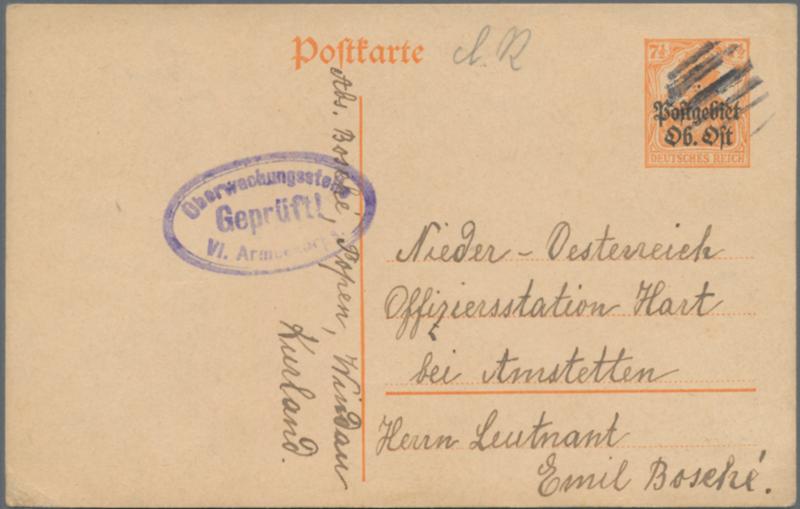 Postkarte
A. R
7½ 7½
Postgebiet
Ob. Ost
DEUTSCHES REICH
Überwachungsstelle
Geprüft!
VI. Armeekorps
Abs. Bosché, Popen, Windau
Kurland.
Nieder-Oesterreich
Offiziersstation Hart
bei Amstetten
Herrn Leutnant
Emil Bosché.